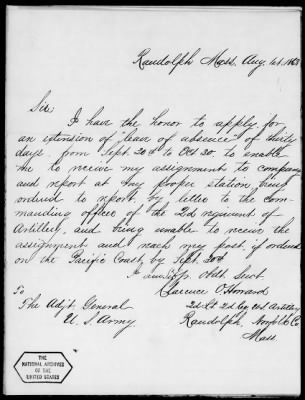 Randolph Mass. Aug 1st
Sir
I have the honor to apply for
an extension of "leave of absence" of thirty
days, from Sept. 20th to Oct 20. to enable
me to receive my assignment to company
and report at my proper station, being
ordered to report, by letter to the Com-
manding officer of the 2d regiment of
Artillery, and being unable to receive the
assignment and reach my post, if ordered
on the Pacific Coast, by Sept. 20th
Obdt Servt
Clarence O. Howard
2d Lt 2d Regt Artillery
To
The Adjt General
U. S. Army.
Randolph, Norfolk Co
Mass.
THE
NATIONAL ARCHIVES
OF THE
UNITED STATES